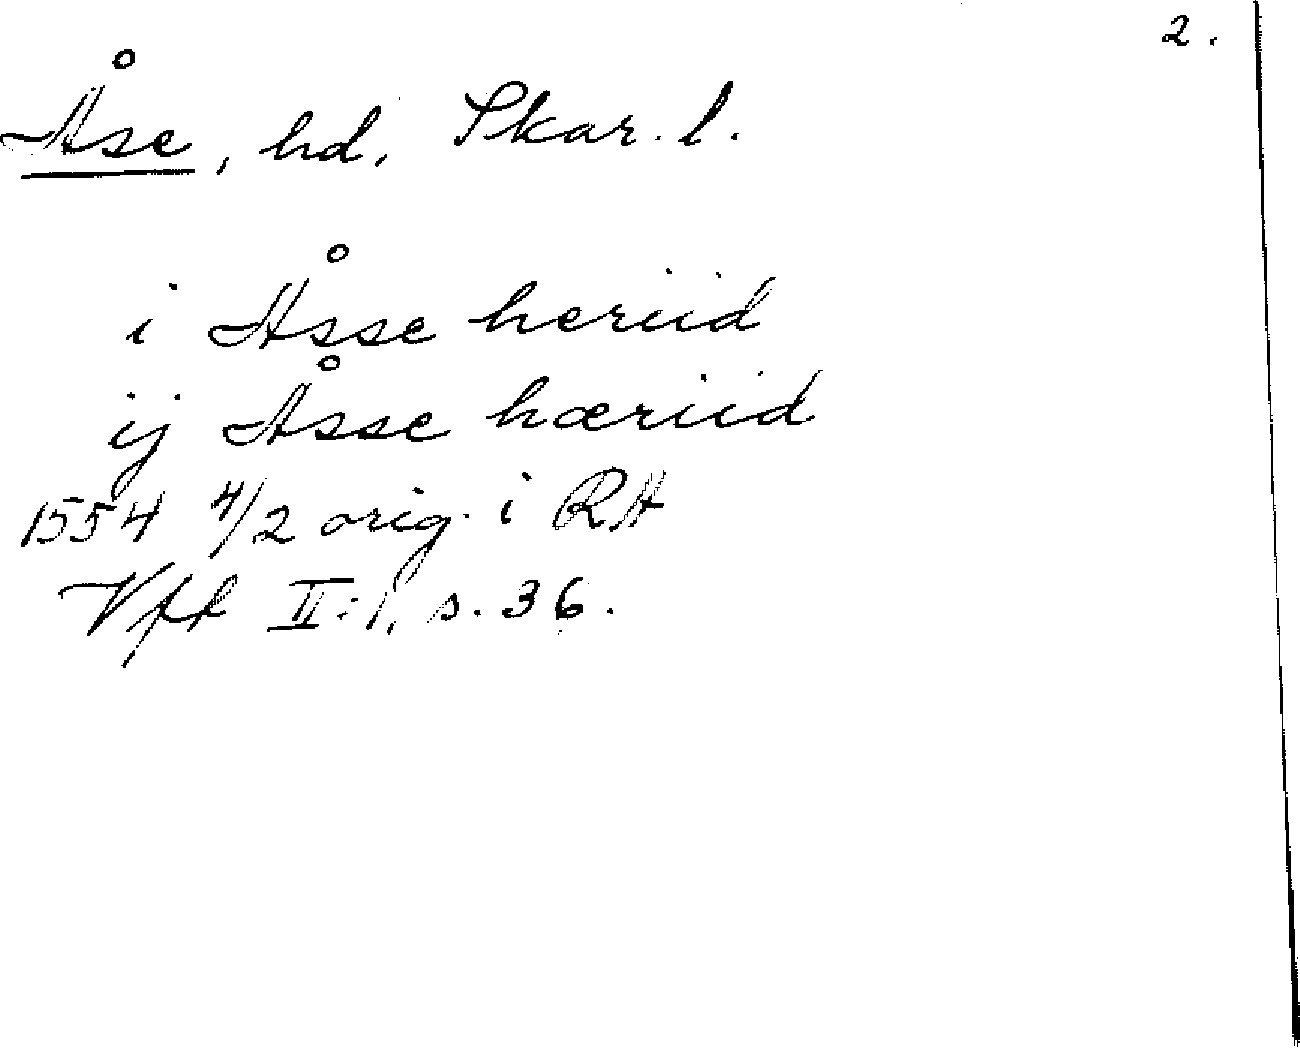 2.
Åse, hd, Skar. l.
i Åsse heriid
ij Åsse hæriid
1554 4/2 orig. i RA
Vff II:1, s. 36.